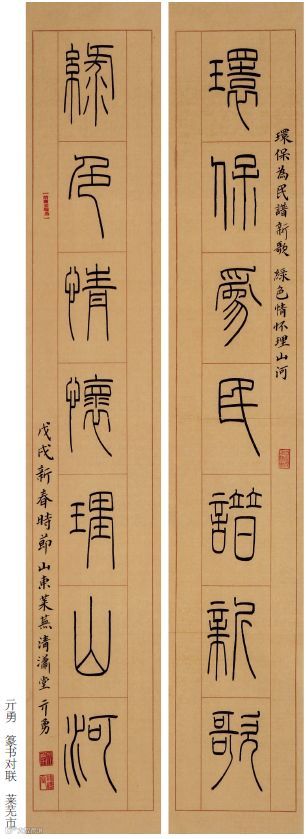 環保為民譜新歌
環保為民譜新歌 綠色情怀理山河
綠色情懷理山河
戊戌新春時節山東萊蕪清瀟堂亓勇
亓勇 篆书对联 莱芜市